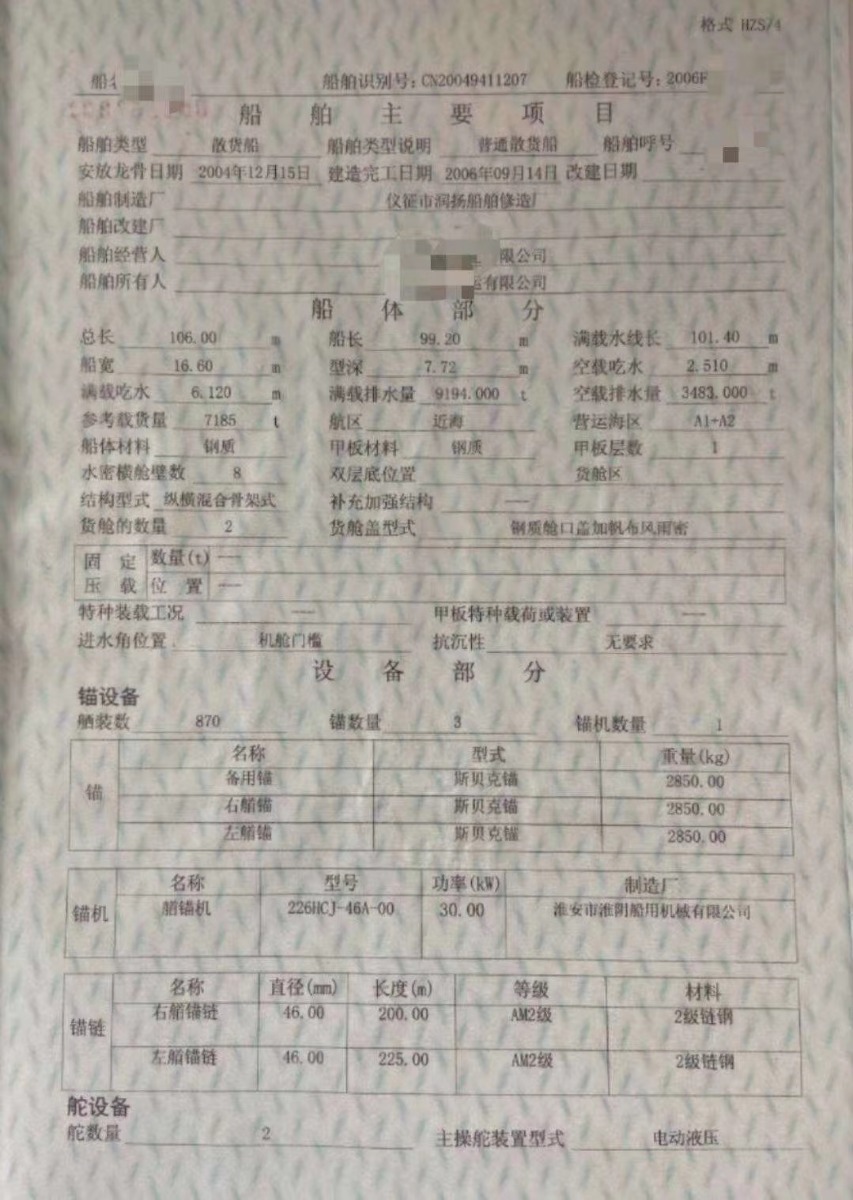 格式 HZS74
船名 船舶识别号: CN20049411207 船检登记号: 2006F
船舶主要项目
船舶类型 散货船 船舶类型说明 普通散货船 船舶呼号
安放龙骨日期 2004年12月15日 建造完工日期 2006年09月14日 改建日期
船舶制造厂 仪征市润扬船舶修造厂
船舶改建厂
船舶经营人 限公司
船舶所有人 运有限公司
船体部分
总长 106.00 m 船长 99.20 m 满载水线长 101.40 m
船宽 16.60 m 型深 7.72 m 空载吃水 2.510 m
满载吃水 6.120 m 满载排水量 9194.000 t 空载排水量 3483.000 t
参考载货量 7185 t 航区 近海 营运海区 A1+A2
船体材料 钢质 甲板材料 钢质 甲板层数 1
水密横舱壁数 8 双层底位置 货舱区
结构型式 纵横混合骨架式 补充加强结构 ---
货舱的数量 2 货舱盖型式 钢质舱口盖加帆布风雨密
固定 数量(t) ---
压载 位置 ---
特种装载工况 --- 甲板特种载荷或装置 ---
进水角位置 机舱门槛 抗沉性 无要求
设备部分
锚设备
舾装数 870 锚数量 3 锚机数量 1
锚
名称 型式 重量(kg)
备用锚 斯贝克锚 2850.00
右艏锚 斯贝克锚 2850.00
左艏锚 斯贝克锚 2850.00
锚机
名称 型号 功率(kW) 制造厂
艏锚机 226HCJ-46A-00 30.00 淮安市淮阴船用机械有限公司
锚链
名称 直径(mm) 长度(m) 等级 材料
右艏锚链 46.00 200.00 AM2级 2级链钢
左艏锚链 46.00 225.00 AM2级 2级链钢
舵设备
舵数量 2 主操舵装置型式 电动液压